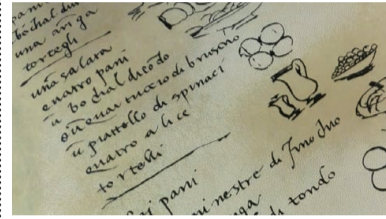 pani
bochal du
una aringa
tortegli
una salata
quatro pani
u bochal di todo
ou quartuccio di bruscho
u piattello di spinaci
quatro alice
tortelli
pani
minestre di finochio
tondo